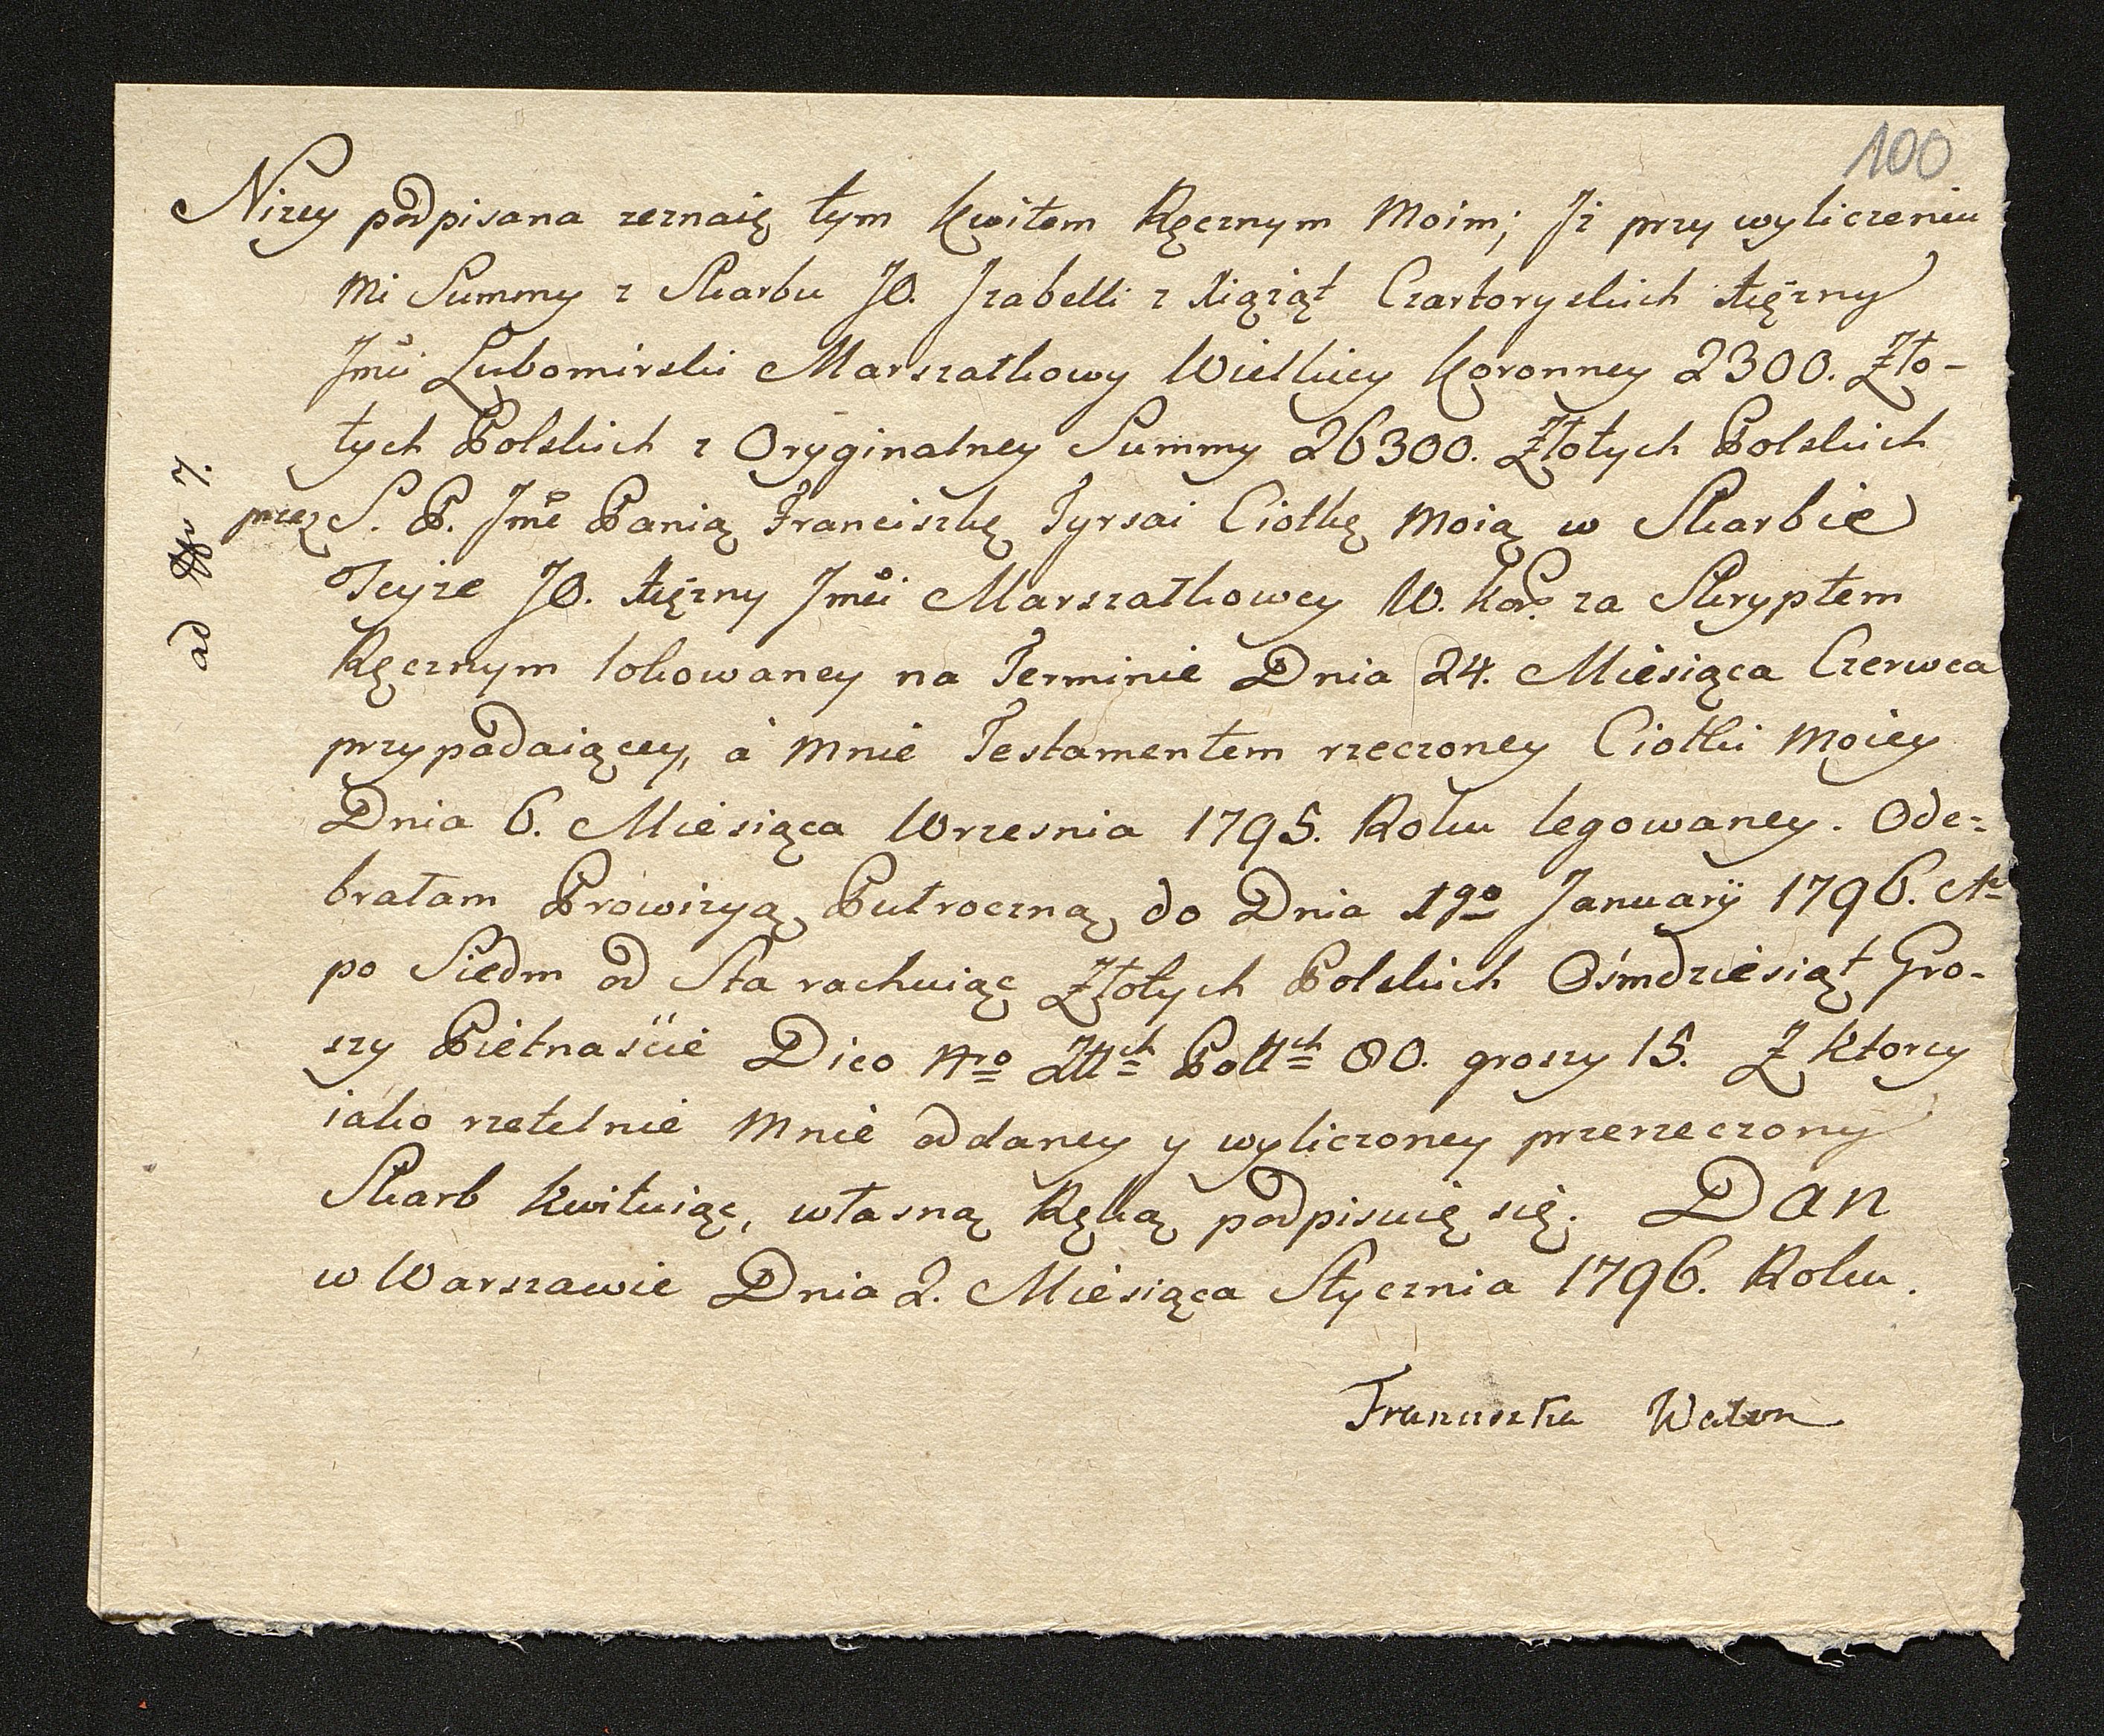 100
Nizey podpisana zeznaię tym Kwitem Ręcznym Moim; Jż przy wyliczeniu
mi Summy z Skarbu JO. Jzabelli z Xiążąt Czartoryskich Xiężny
Jmći Lubomirski Marszałkowy Wielkiey Koronney 2300. Zło-
tych Polskich z Oryginalney Summy 26300. Złotych Polskich
przez S. P. Jmć Panią Franciszkę Tyrsai Ciotkę Moią w Skarbie
Teyże JO. Xiężny Jmći Marszałkowey W. Kor. za Skryptem
Ręcznym lokowaney na Terminie Dnia 24. Miesiąca Czerwca
przypadaiącey, à mnie Testamentem rzeczoney Ciotki Moiey
Dnia 6. Miesiąca Wrzesnia 1795. Roku legowaney. Ode-
brałam Prowizyą Pułroczną do Dnia 1go Januarij 1796.
po Siedm od Sta rachuiąc Złotych Polskich Ośmdziesiąt Gro-
szy Piętnaście Dico Nro Złłch Pollch 80. groszy 15. Z Ktorey
iako rzetelnie Mnie oddaney y wyliczoney przerzeczony
Skarb Kwituiąc, własną Ręką podpisuię się. Dan
w Warszawie Dnia 2. Miesiąca Stycznia 1796. Roku.
Franciszka Watson
ad Nr 7.